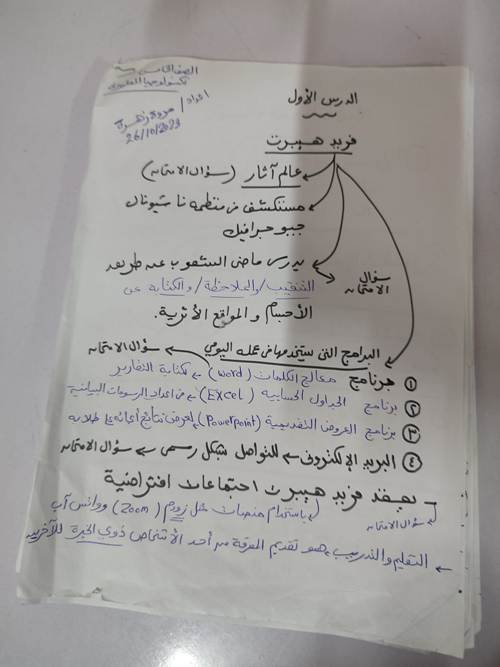 الصف الخامس
تكنولوجيا المعلومات
اعداد / مروة زهرة
26/10/2023
الدرس الأول
فريد هيبرت
عالم آثار (سؤال الامتحان)
مستكشف من منظمة ناشيونال
جيوجرافيك
يدرس ماضى الشعوب عن طريق
سؤال الامتحان
التنقيب / والملاحظة / والكتابة عن
الأجسام والمواقع الأثرية.
البرامج التى يستخدمها فى عمله اليومي
سؤال الامتحان
① برنامج معالج الكلمات (word) فى كتابة التقارير
② برنامج الجداول الحسابية (Excel) فى اعداد الرسومات البيانية
③ برنامج العروض التقديمية (Powerpoint) لعرض نتائج أعماله على طلابه
④ البريد الإلكترونى للتواصل بشكل رسمى سؤال الامتحان
- يعقد فريد هيبرت اجتماعات افتراضية
سؤال الامتحان
باستخدام منصات مثل زووم (Zoom) وواتس آب
التعليم والتدريب هو تقديم المعرفة من أحد الأشخاص ذوي الخبرة للآخرين